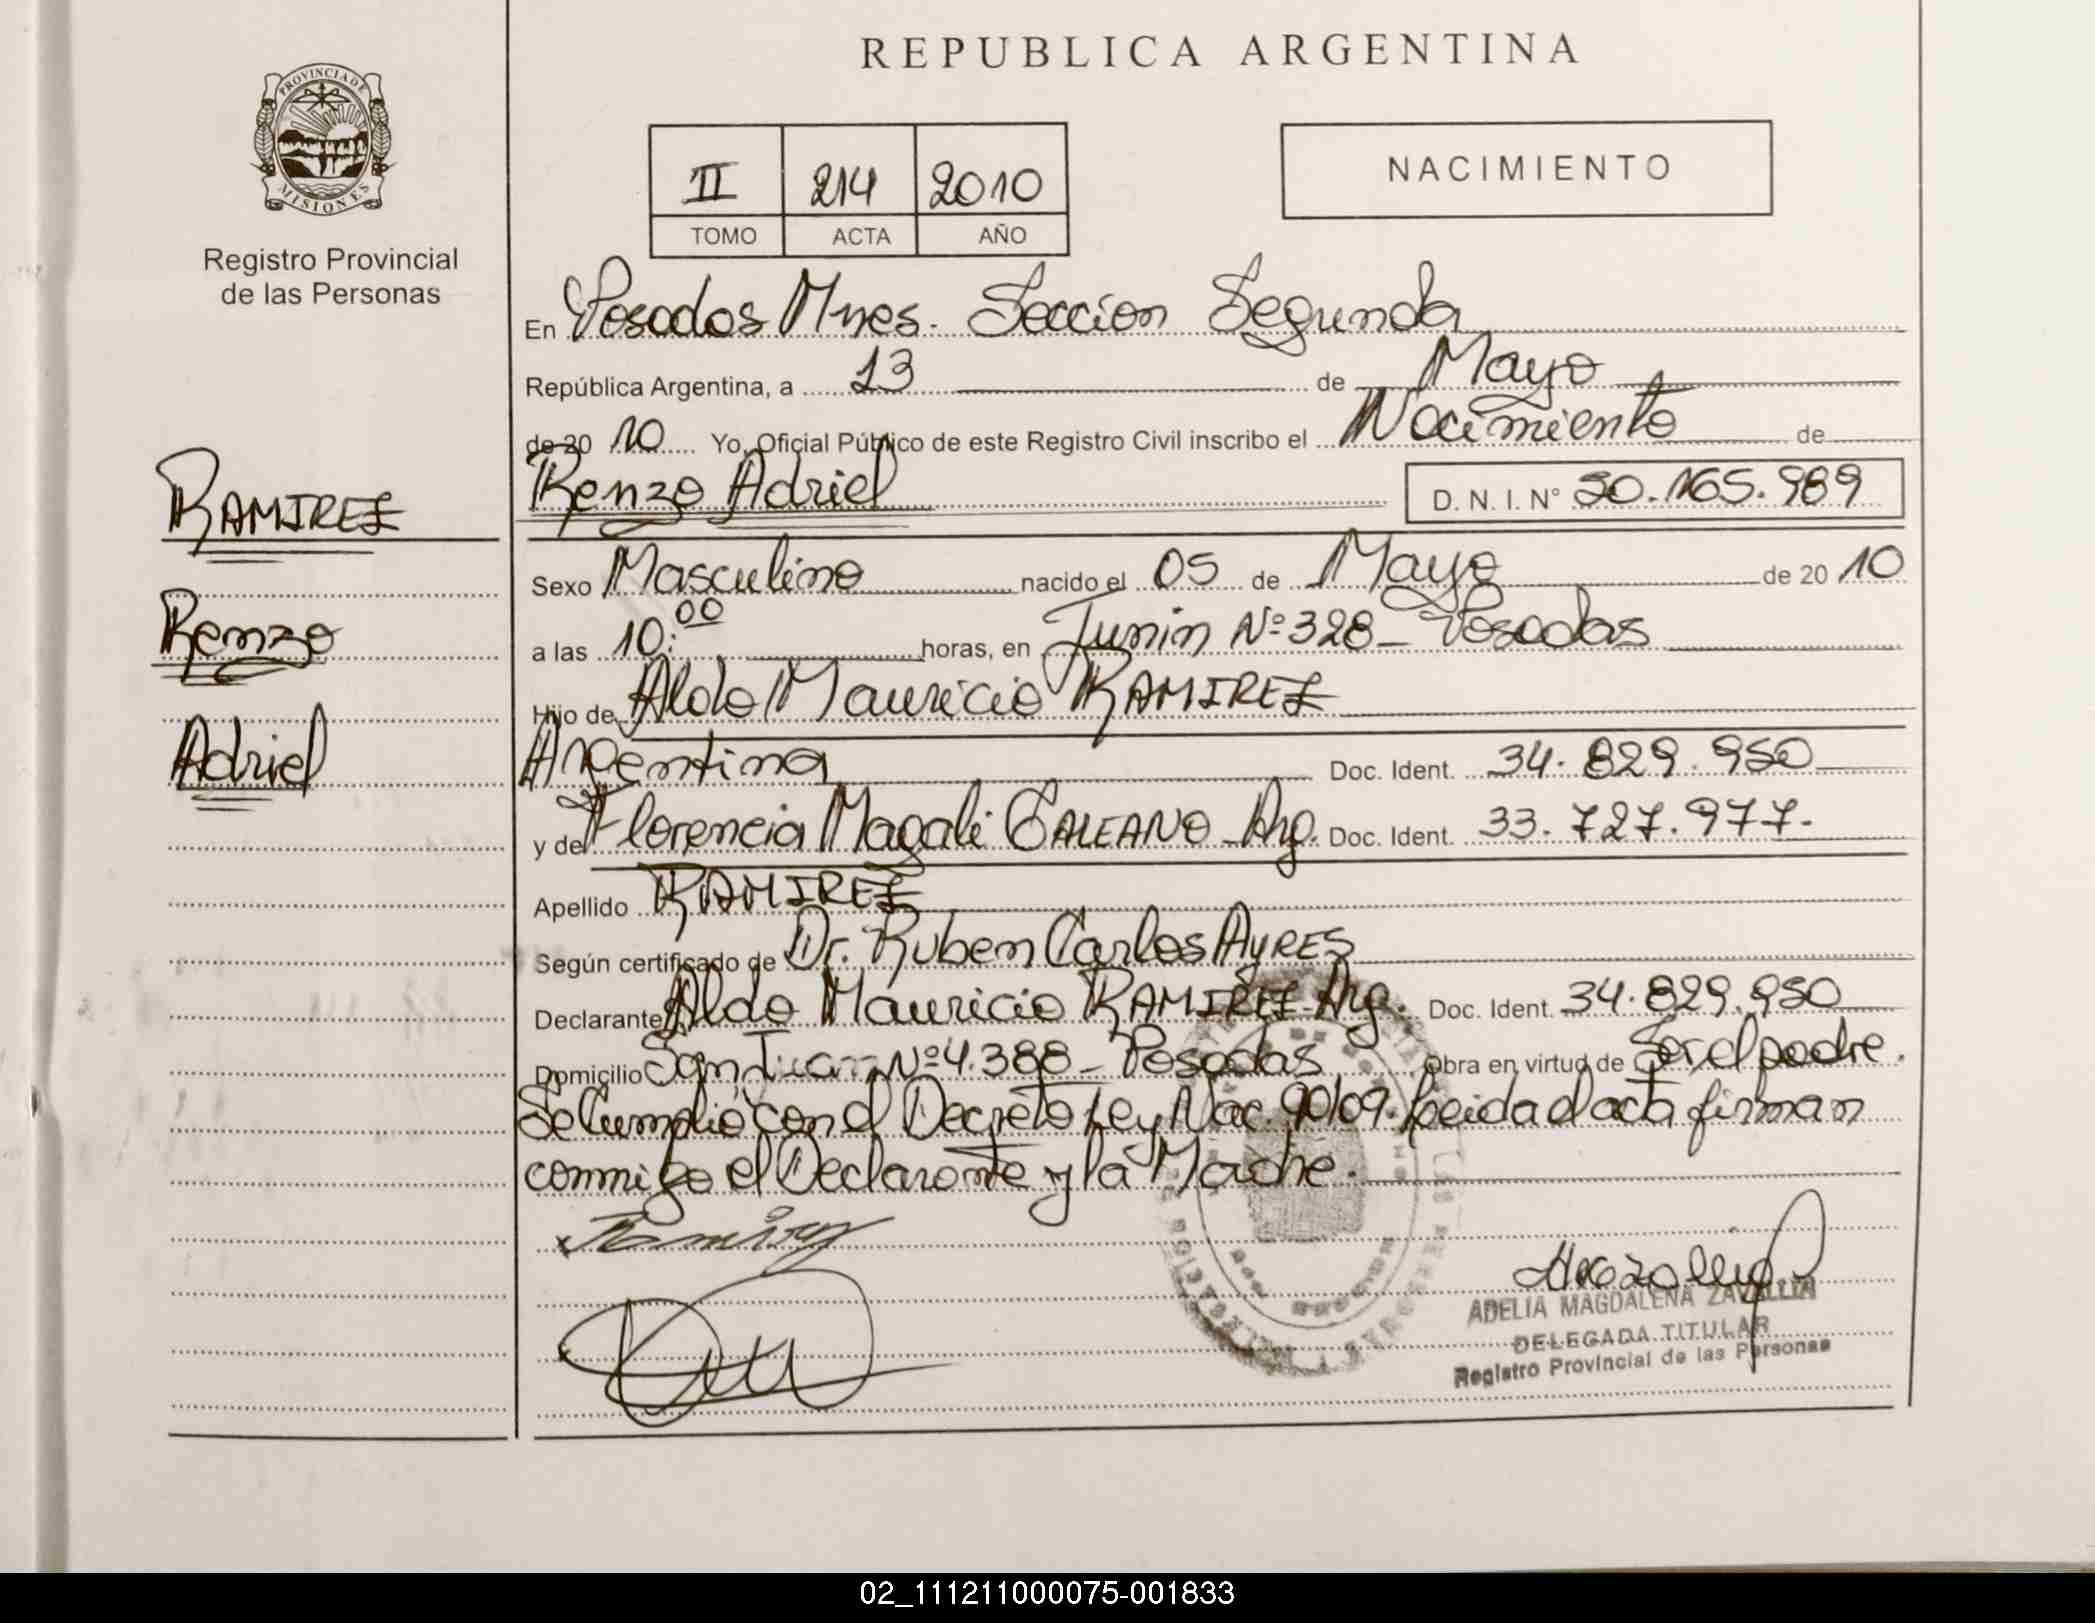 REPUBLICA ARGENTINA
PROVINCIA DE
MISIONES
Registro Provincial
de las Personas
II 214 2010
TOMO ACTA AÑO
NACIMIENTO
En Posadas Mnes. Seccion Segunda
República Argentina, a 13 de Mayo
de 20 10 Yo, Oficial Público de este Registro Civil inscribo el Nacimiento de
RAMIREZ
Renzo
Adriel
Renzo Adriel D. N. I. N° 50.165.989
Sexo Masculino nacido el 05 de Mayo de 20 10
a las 10:00 horas, en Junin Nº 328 - Posadas
Hijo de Aldo Mauricio RAMIREZ
Argentina Doc. Ident. 34.829.950
y de Florencia Magali GALEANO - Arg. Doc. Ident. 33.727.977.
Apellido RAMIREZ
Según certificado de Dr. Ruben Carlos AYRES
Declarante Aldo Mauricio RAMIREZ - Arg. Doc. Ident. 34.829.950
Domicilio San Juan Nº 4.388 - Posadas Obra en virtud de Ser el padre.
Se Cumplió con el Decreto Ley Nac. 90/09. Leida el acta firman
conmigo el Declarante y la Madre.
ADELIA MAGDALENA ZAVALLIA
DELEGADA TITULAR
Registro Provincial de las Personas
02_111211000075-001833